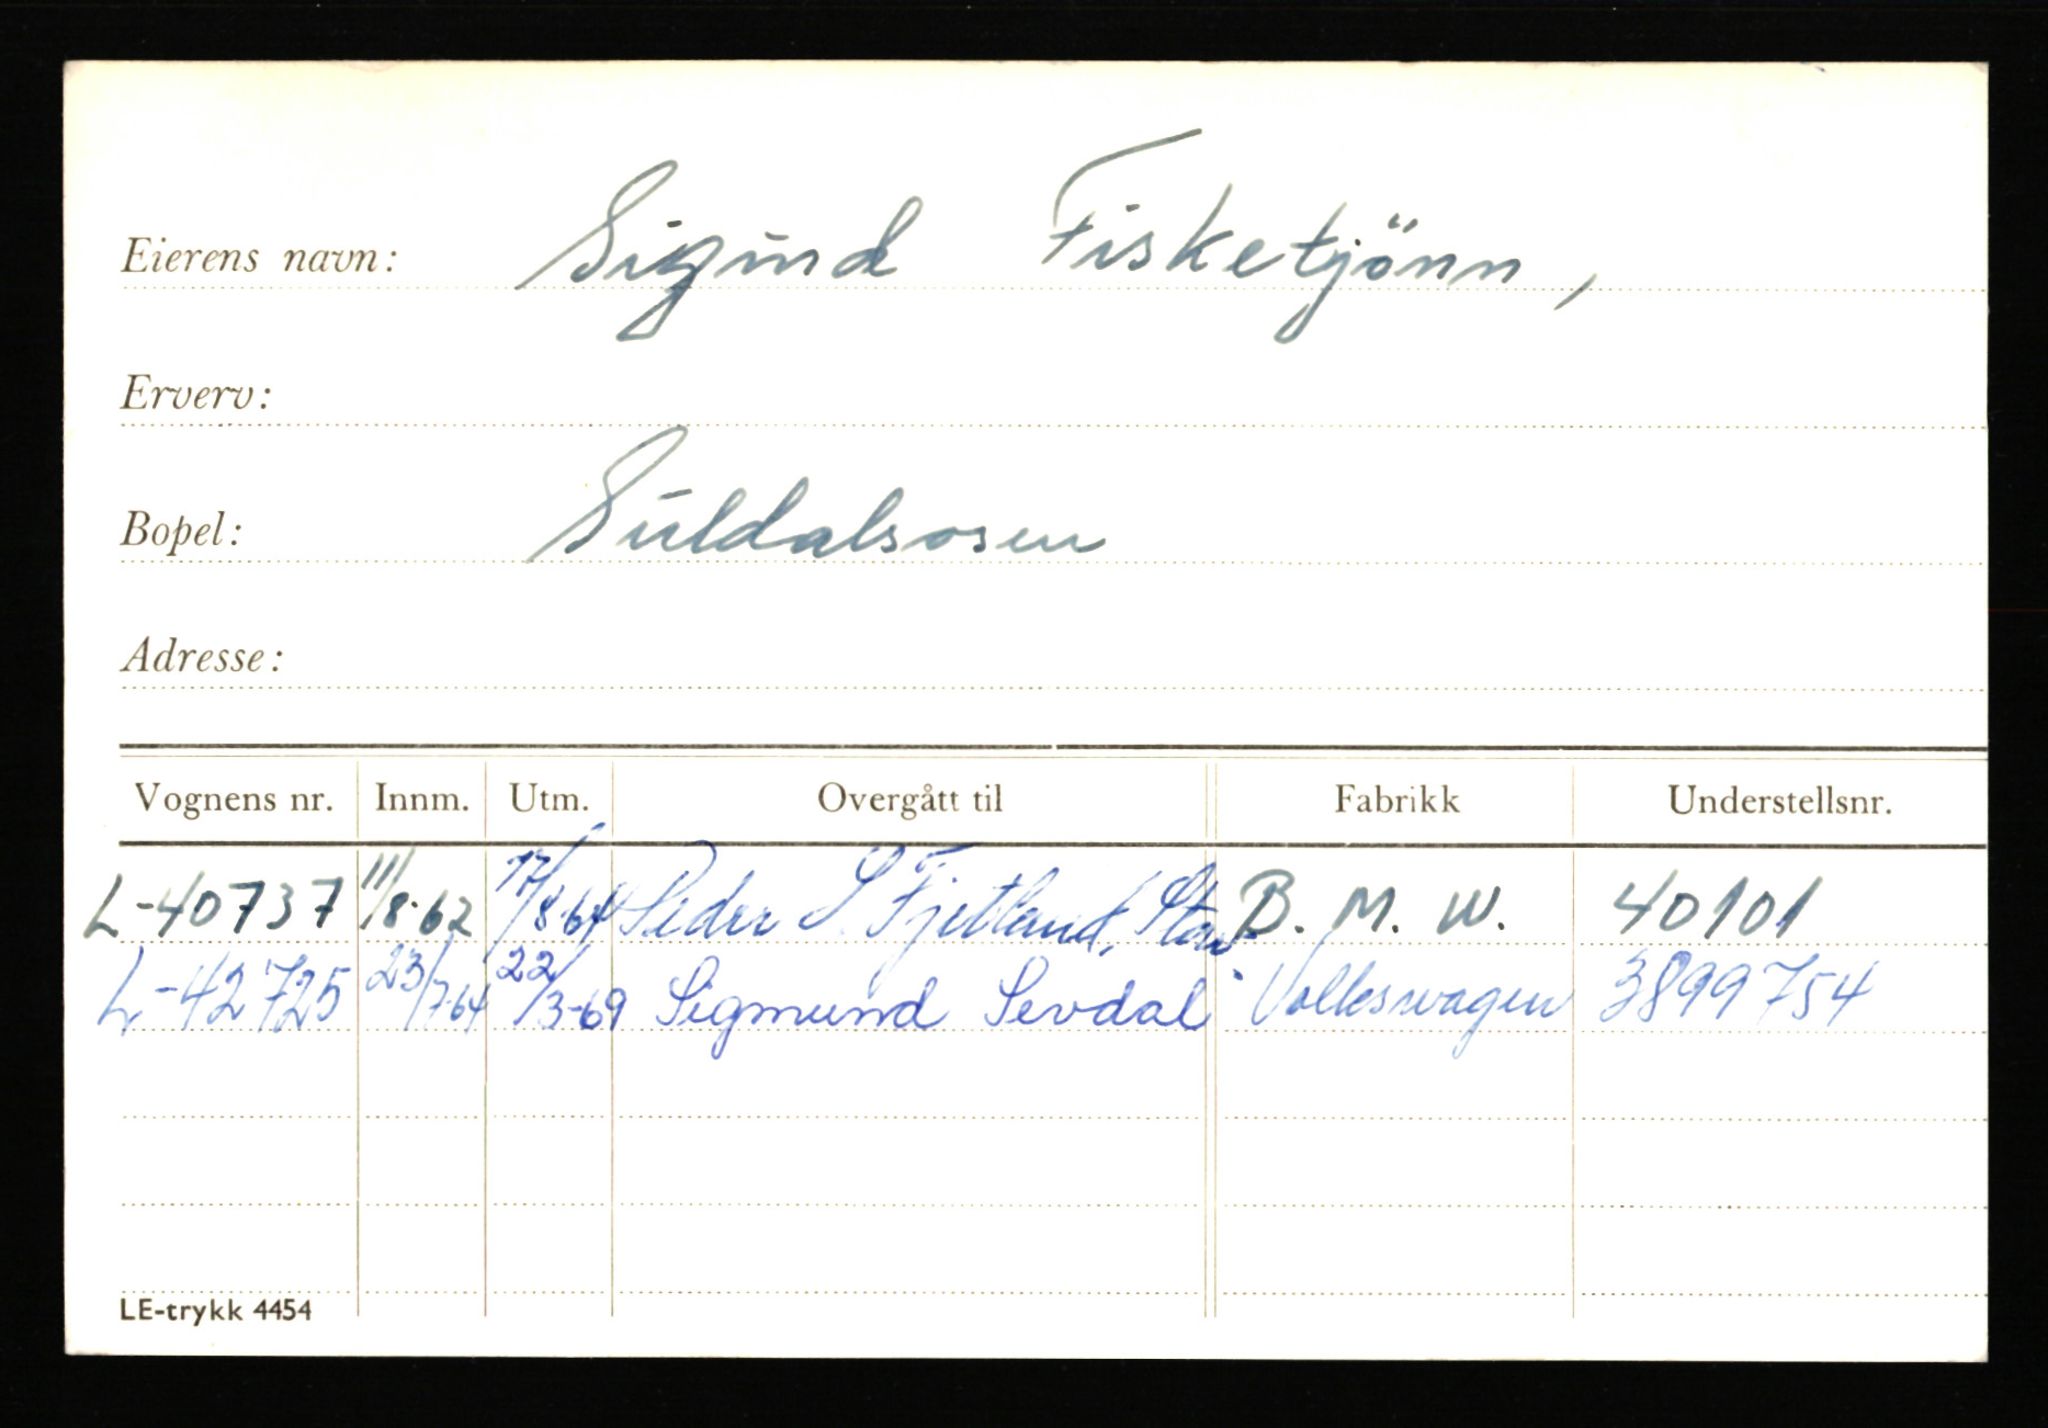 Eierens navn: Sigund Fisketjönn,
Erverv:
Bopel: Suldalsosen
Adresse:
Vognens nr. Innm. Utm. Overgått til Fabrikk Understellsnr.
L-40737 11/8-62 17/8-64 Peder S. Fjetland, Stav. B. M. W. 40101
L-42725 23/7-64 22/3-69 Sigmund Sevdal Volkswagen 3899754
LE-trykk 4454